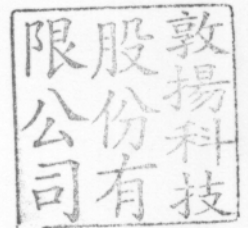 敦揚科技
股份有
限公司